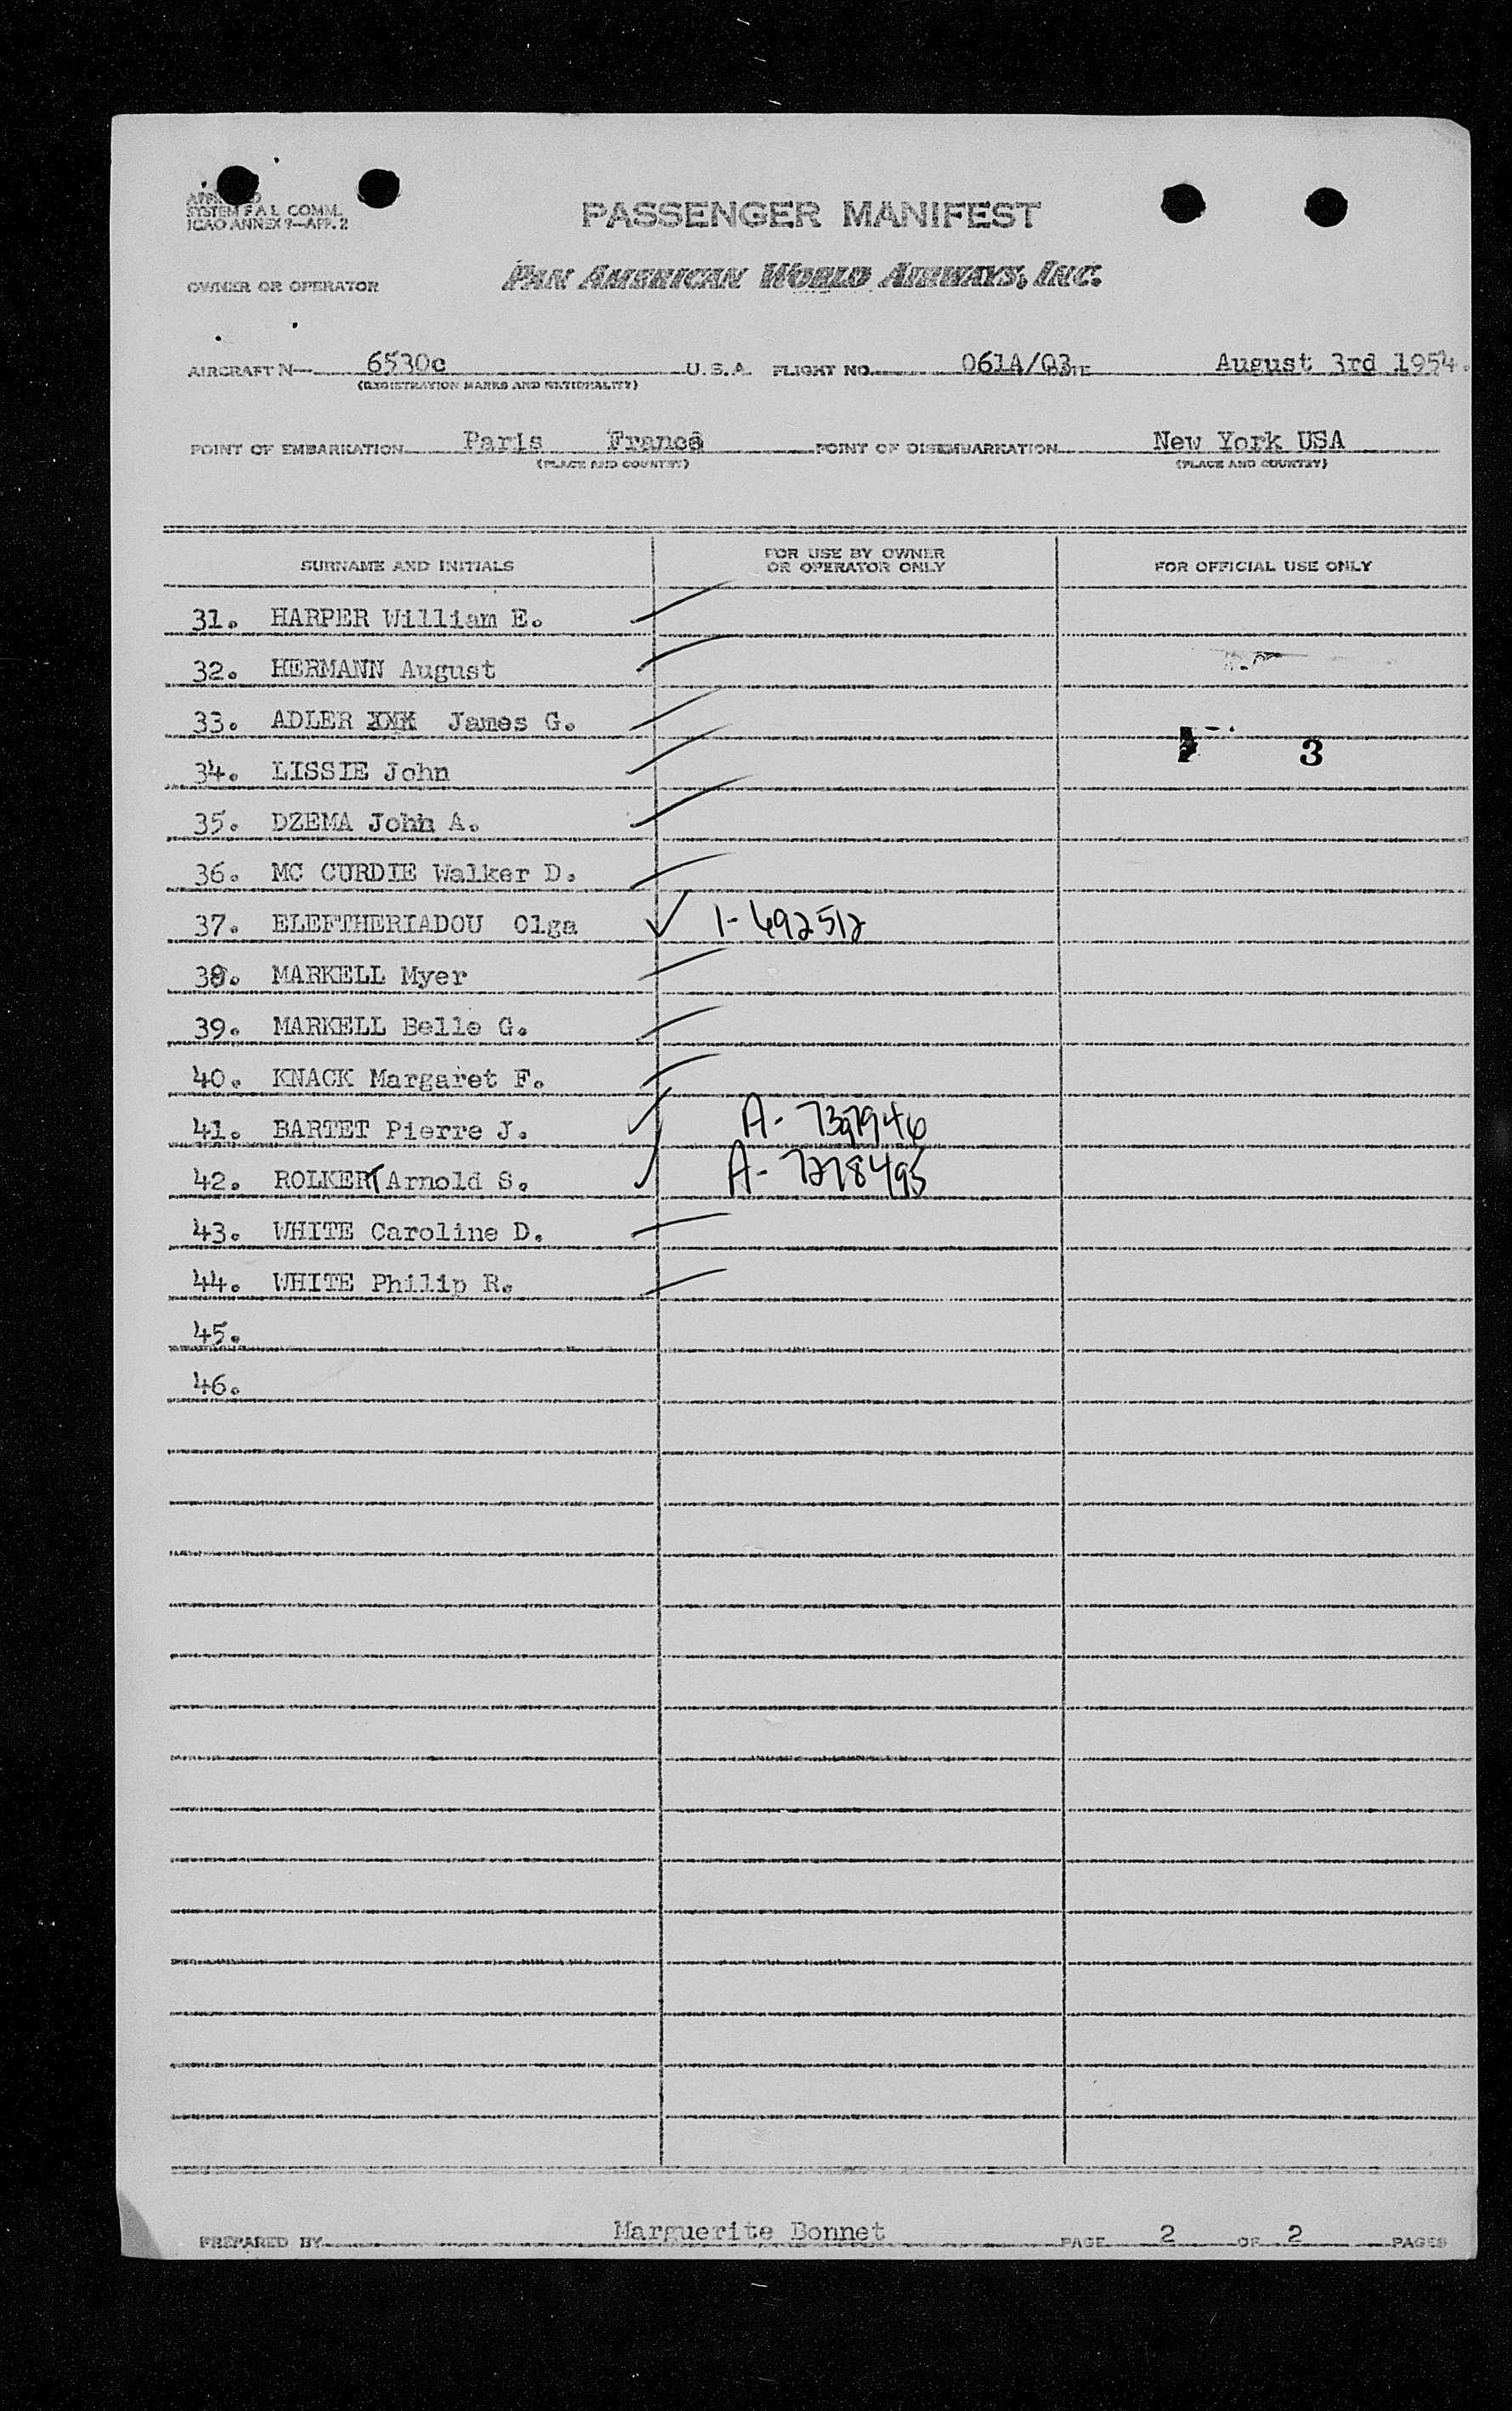 APPROVED
SYSTEM F A L COMM.
ICAO ANNEX 9—APP. 2
PASSENGER MANIFEST
OWNER OR OPERATOR PAN AMERICAN WORLD AIRWAYS, INC.
AIRCRAFT N— 6530c U.S.A. FLIGHT NO. 061A/03 DATE August 3rd 1954.
(REGISTRATION MARKS AND NATIONALITY)
POINT OF EMBARKATION Paris France POINT OF DISEMBARKATION New York USA
(PLACE AND COUNTRY) (PLACE AND COUNTRY)
SURNAME AND INITIALS FOR USE BY OWNER OR OPERATOR ONLY FOR OFFICIAL USE ONLY
31. HARPER William E.
32. HERMANN August
33. ADLER XXX James G.
3
34. LISSIE John
35. DZEMA John A.
36. MC CURDIE Walker D.
37. ELEFTHERIADOU Olga ✓ 1-692512
38. MARKELL Myer
39. MARKELL Belle G.
40. KNACK Margaret F.
41. BARTET Pierre J. A-
42. ROLKERT Arnold S. A- 7278495
43. WHITE Caroline D.
44. WHITE Philip R.
45.
46.
PREPARED BY Marguerite Bonnet PAGE 2 OF 2 PAGES